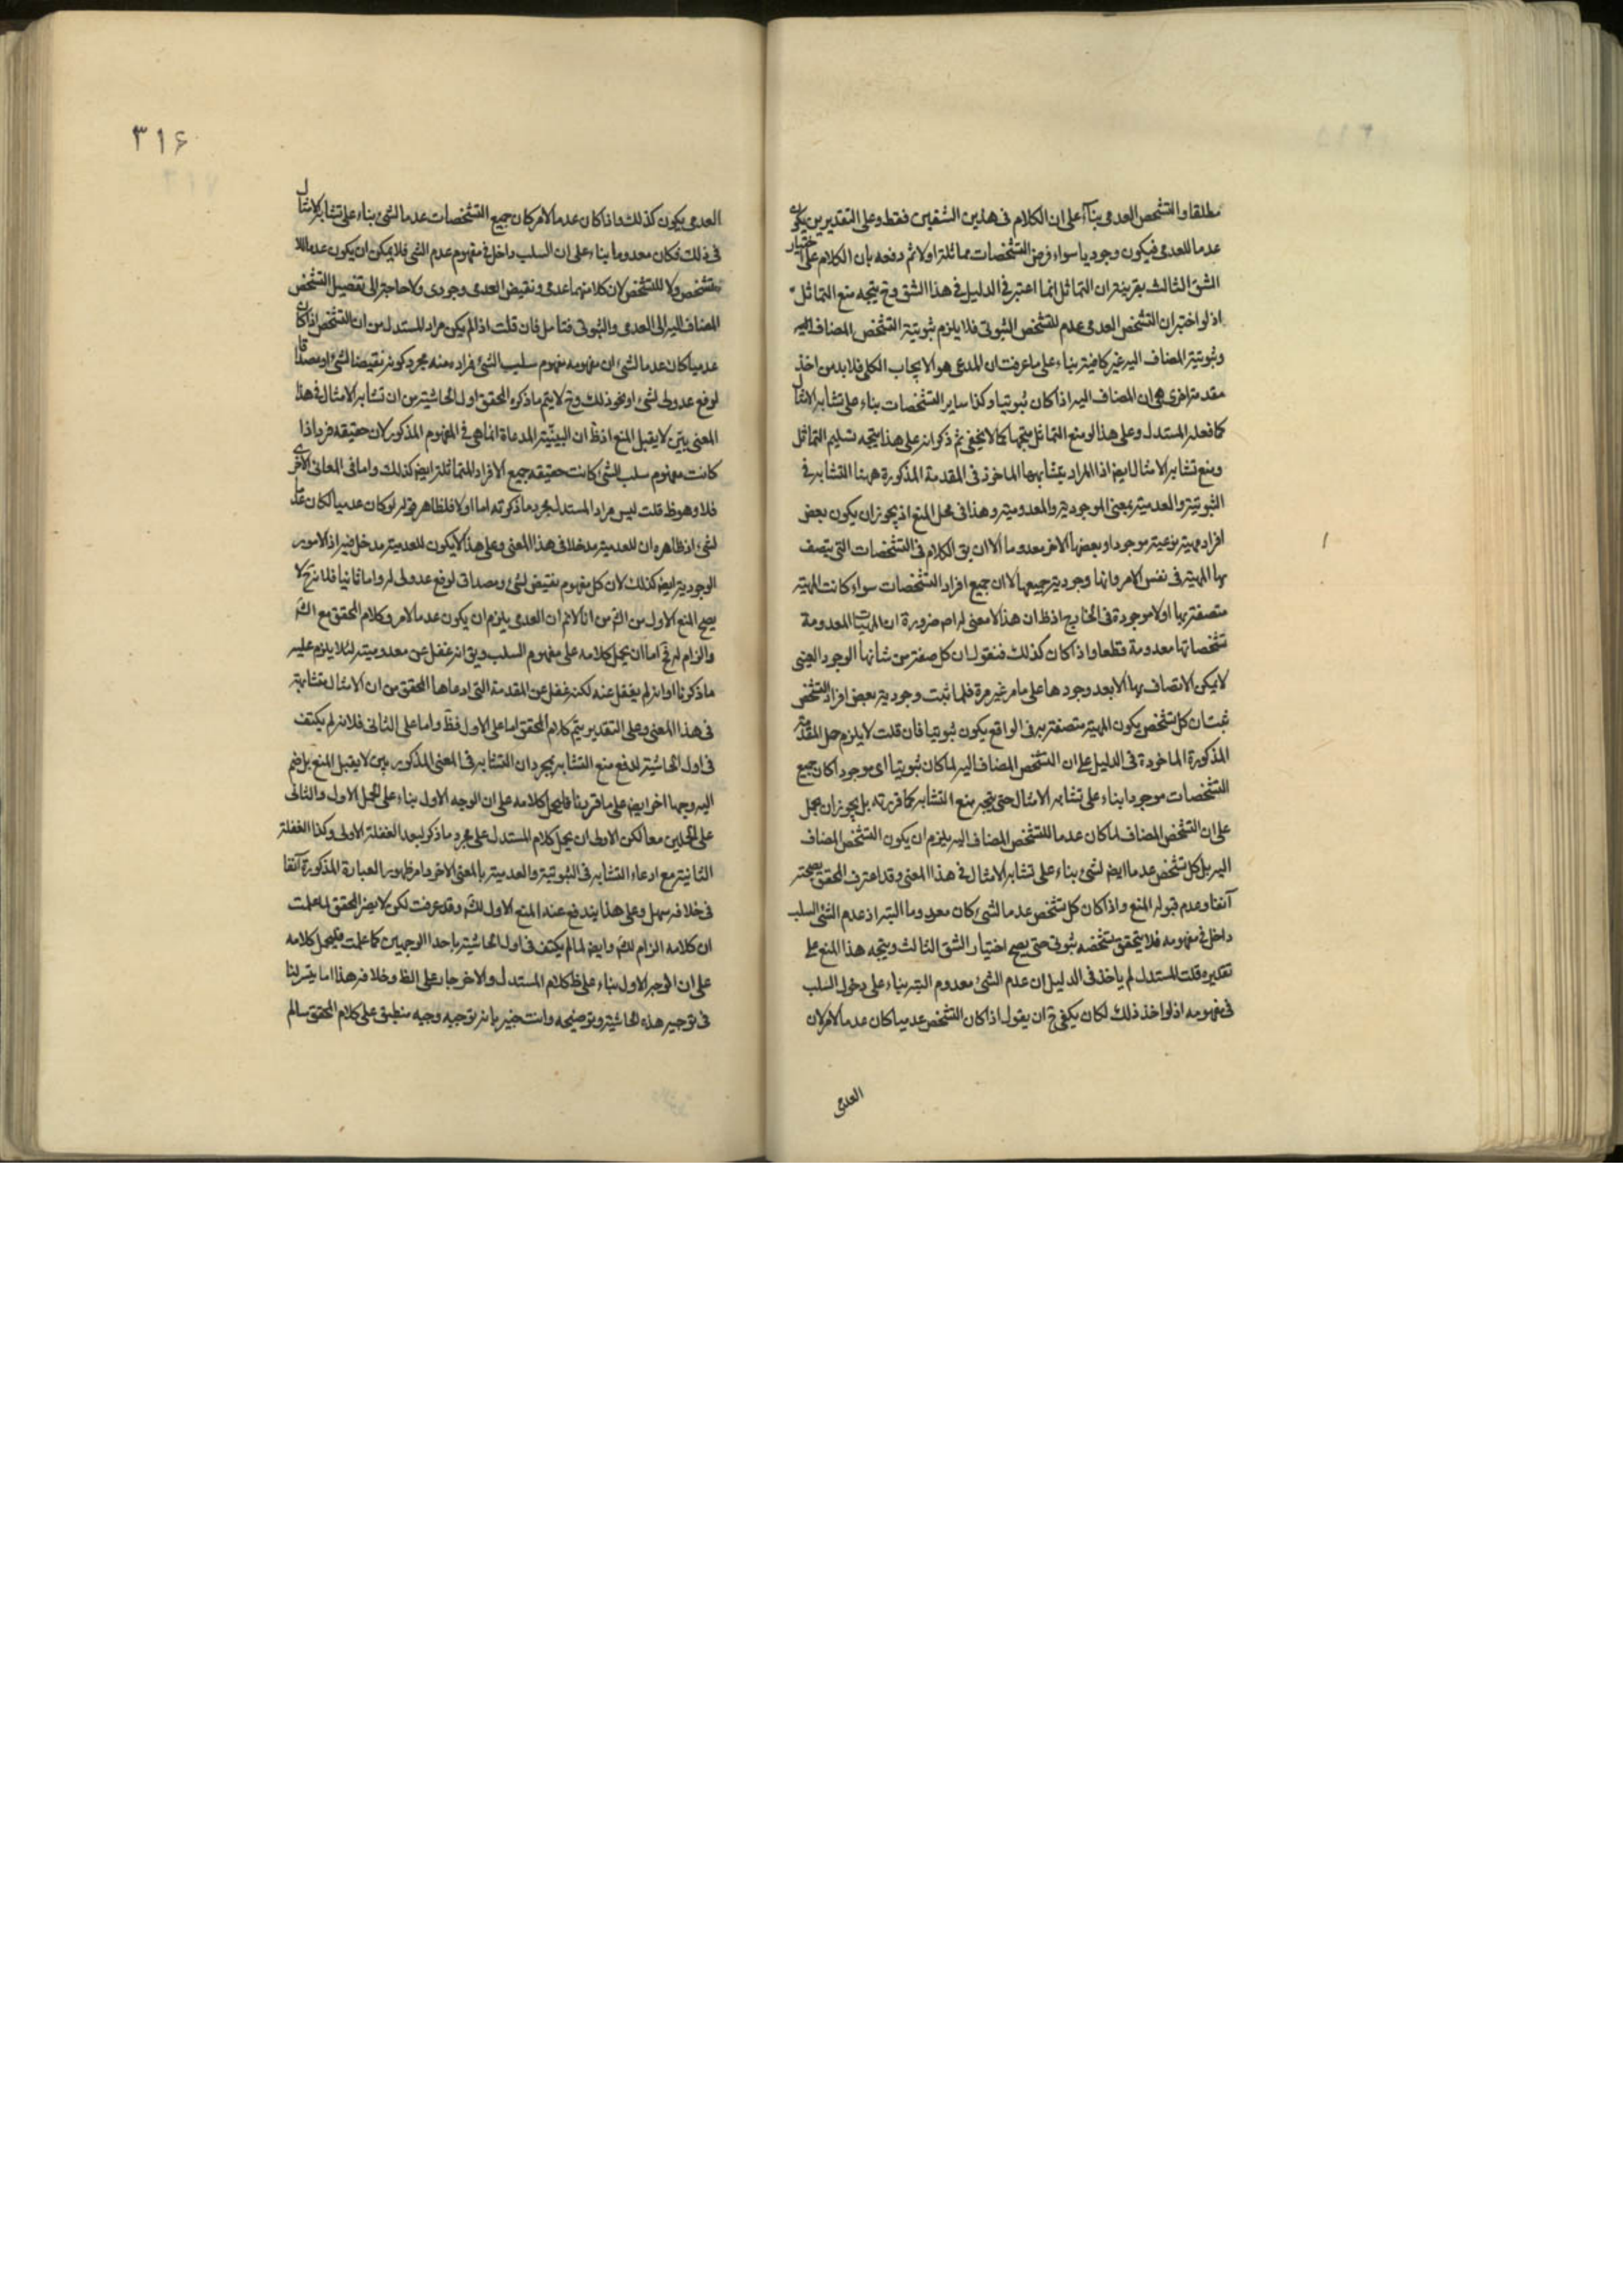 مطلقا والتشخص العدمى بناء على ان الكلام فى هذين الشقين فقط وعلى التقديرين يكون
عدما للعدمى فيكون وجوديا سواء فرض التشخصات مماثلة اولا ثم دفعه بان الكلام على اختيار
الشق الثالث بقرينة ان التماثل انما اعتبر فى الدليل فى هذا الشق وح يتجه منع التماثل
اذ لو اختير ان التشخص العدمى عدم للتشخص الثبوتى فلا يلزم ثبوتية التشخص المضاف اليه
وثبوتية المضاف اليه غير كافية بناء على ما عرفت ان المدعى هو الايجاب الكلى فلا بد من اخذ
مقدمة اخرى هى ان المضاف اليه اذا كان ثبوتيا وكذا ساير التشخصات بناء على تشابه الامثال
كما فعله المستدل وعلى هذا لو منع التماثل متجها كما لا يخفى ثم ذكر انه على هذا يتجه تسليم التماثل
ومنع تشابه الامثال ايض اذ المراد بتشابهها الماخوذ فى المقدمة المذكورة ههنا التشابه فى
الثبوتية والعدمية بمعنى الموجودية والمعدومية وهذا فى محل المنع اذ يجوز ان يكون بعض
افراد مهية نوعية موجودا وبعضها الاخر معدوما الا ان يق الكلام فى التشخصات التى يتصف
بها المهية فى نفس الامر وانها وجودية جميعها لا ان جميع افراد التشخصات سواء كانت المهية
متصفة بها اولا موجودة فى الخارج اذ ظ ان هذا لا معنى له اصلا ضرورة ان المهيات المعدومة
تشخصاتها معدومة قطعا واذا كان كذلك فنقول ان كل صفة من شانها الوجود العينى
لا يمكن الاتصاف بها الا بعد وجودها على ما مر غير مرة فلما ثبت وجودية بعض افراد التشخص
ثبت ان كل تشخص يكون المهية متصفة به فى الواقع يكون ثبوتيا فان قلت لا يلزم حمل المقدمة
المذكورة الماخوذة فى الدليل على ان التشخص المضاف اليه لما كان ثبوتيا اى موجودا كان جميع
التشخصات موجودا بناء على تشابه الامثال حتى يتجه منع التشابه كما قررته بل يجوز ان يحمل
على ان التشخص المضاف لما كان عدما للتشخص المضاف اليه يلزم ان يكون التشخص المضاف
اليه بل كل تشخص عدما ايض لشئ بناء على تشابه الامثال فى هذا المعنى وقد اعترف المحقق بصحته
آنفا وعدم قبوله المنع واذا كان كل تشخص عدما لشئ كان معدوما البتة اذ عدم الشئ السلب
داخل فى مفهومه فلا يتحقق تشخصه ثبوتى حتى يصح اختيار الشق الثالث ويتجه هذا المنع على
تقديره قلت المستدل لم ياخذ فى الدليل ان عدم الشئ معدوم البتة بناء على دخول السلب
فى مفهومه اذ لو اخذ ذلك لكان يكفى ح ان يقول اذا كان التشخص عدميا كان عدما لامر لان
العدمى
٣١۶
العدمى يكون كذلك واذا كان عدما لامر كان جميع التشخصات عدما لشئ بناء على تشابه الامثال
فى ذلك فكان معدوما بناء على ان السلب داخل فى مفهوم عدم الشئ فلا يمكن ان يكون عدما للا
تشخص ولا للتشخص لان كلا منهما عدمى ونقيض العدمى وجودى ولا حاجة الى تفصيل التشخص
المضاف اليه الى العدمى والثبوتى فتامل فان قلت اذا لم يكن مراد المستدل من ان التشخص اذا كان
عدميا كان عدما لشئ ان مفهومه مفهوم سلب الشئ فمراده منه مجرد كونه نقيضا لشئ او مصداقا
لرفع عدولى لشئ او نحو ذلك وح لا يتم ما ذكره المحقق اول الحاشية من ان تشابه الامثال فى هذا
المعنى بين لا يقبل المنع اذ ظ ان البينية المدعاة انما هى فى المفهوم المذكور لان حقيقه فرد اذا
كانت مفهوم سلب الشئ كانت حقيقه جميع الافراد المتماثلة ايض كذلك واما فى المعانى الاخرى
فلا وهو ظ قلت ليس مراد المستدل مجرد ما ذكرته اما اولا فلظاهر قوله لو كان عدميا لكان عدما
لشئ اذ ظاهره ان للعدمية مدخلا فى هذا المعنى وعلى هذا لا يكون للعدمية مدخل فيه اذ الامور
الوجودية ايض كذلك لان كل مفهوم نقيض لشئ ومصداق لرفع عدولى له واما ثانيا فلانه ح لا
يصح المنع الاول من الش من انا لا نم ان العدمى يلزم ان يكون عدما لامر وكلام المحقق مع الش
والزام له فح اما ان يحمل كلامه على مفهوم السلب ويق انه غفل عن معدوميته لئلا يلزم عليه
ما ذكرنا او انه لم يغفل عنه لكنه غفل عن المقدمة التى ادعاها المحقق من ان الامثال متشابهة
فى هذا المعنى وعلى التقديرين يتم كلام المحقق اما على الاول فظ واما على الثانى فلانه لم يكتف
فى اول الحاشية لدفع منع التشابه بمجرد ان التشابه فى المعنى المذكور بين لا يقبل المنع بل ضم
اليه وجها اخر ايض على ما قررنا فليحمل كلامه على ان الوجه الاول بناء على الحمل الاول والثانى
على الحملين معا لكن الاولى ان يحمل كلام المستدل على مجرد ما ذكر لبعد الغفلة الاولى وكذا الغفلة
الثانية مع ادعاء التشابه فى الثبوتية والعدمية بالمعنى الاخر وامر ظهور العبارة المذكورة آنفا
فى خلافه سهل وعلى هذا يندفع عنه المنع الاول للش وقد عرفت لكن لا يضر المحقق لما علمت
ان كلامه الزام للش وايض لما لم يكتف فى اول الحاشية باحد الوجهين كما علمت فليحمل كلامه
على ان الوجه الاول بناء على ظ كلام المستدل والاخر جار على الظ وخلافه هذا ما يتسر لنا
فى توجيه هذه الحاشية وتوضيحه وانت خبير بانه توجيه وجيه منطبق على كلام المحقق سالم